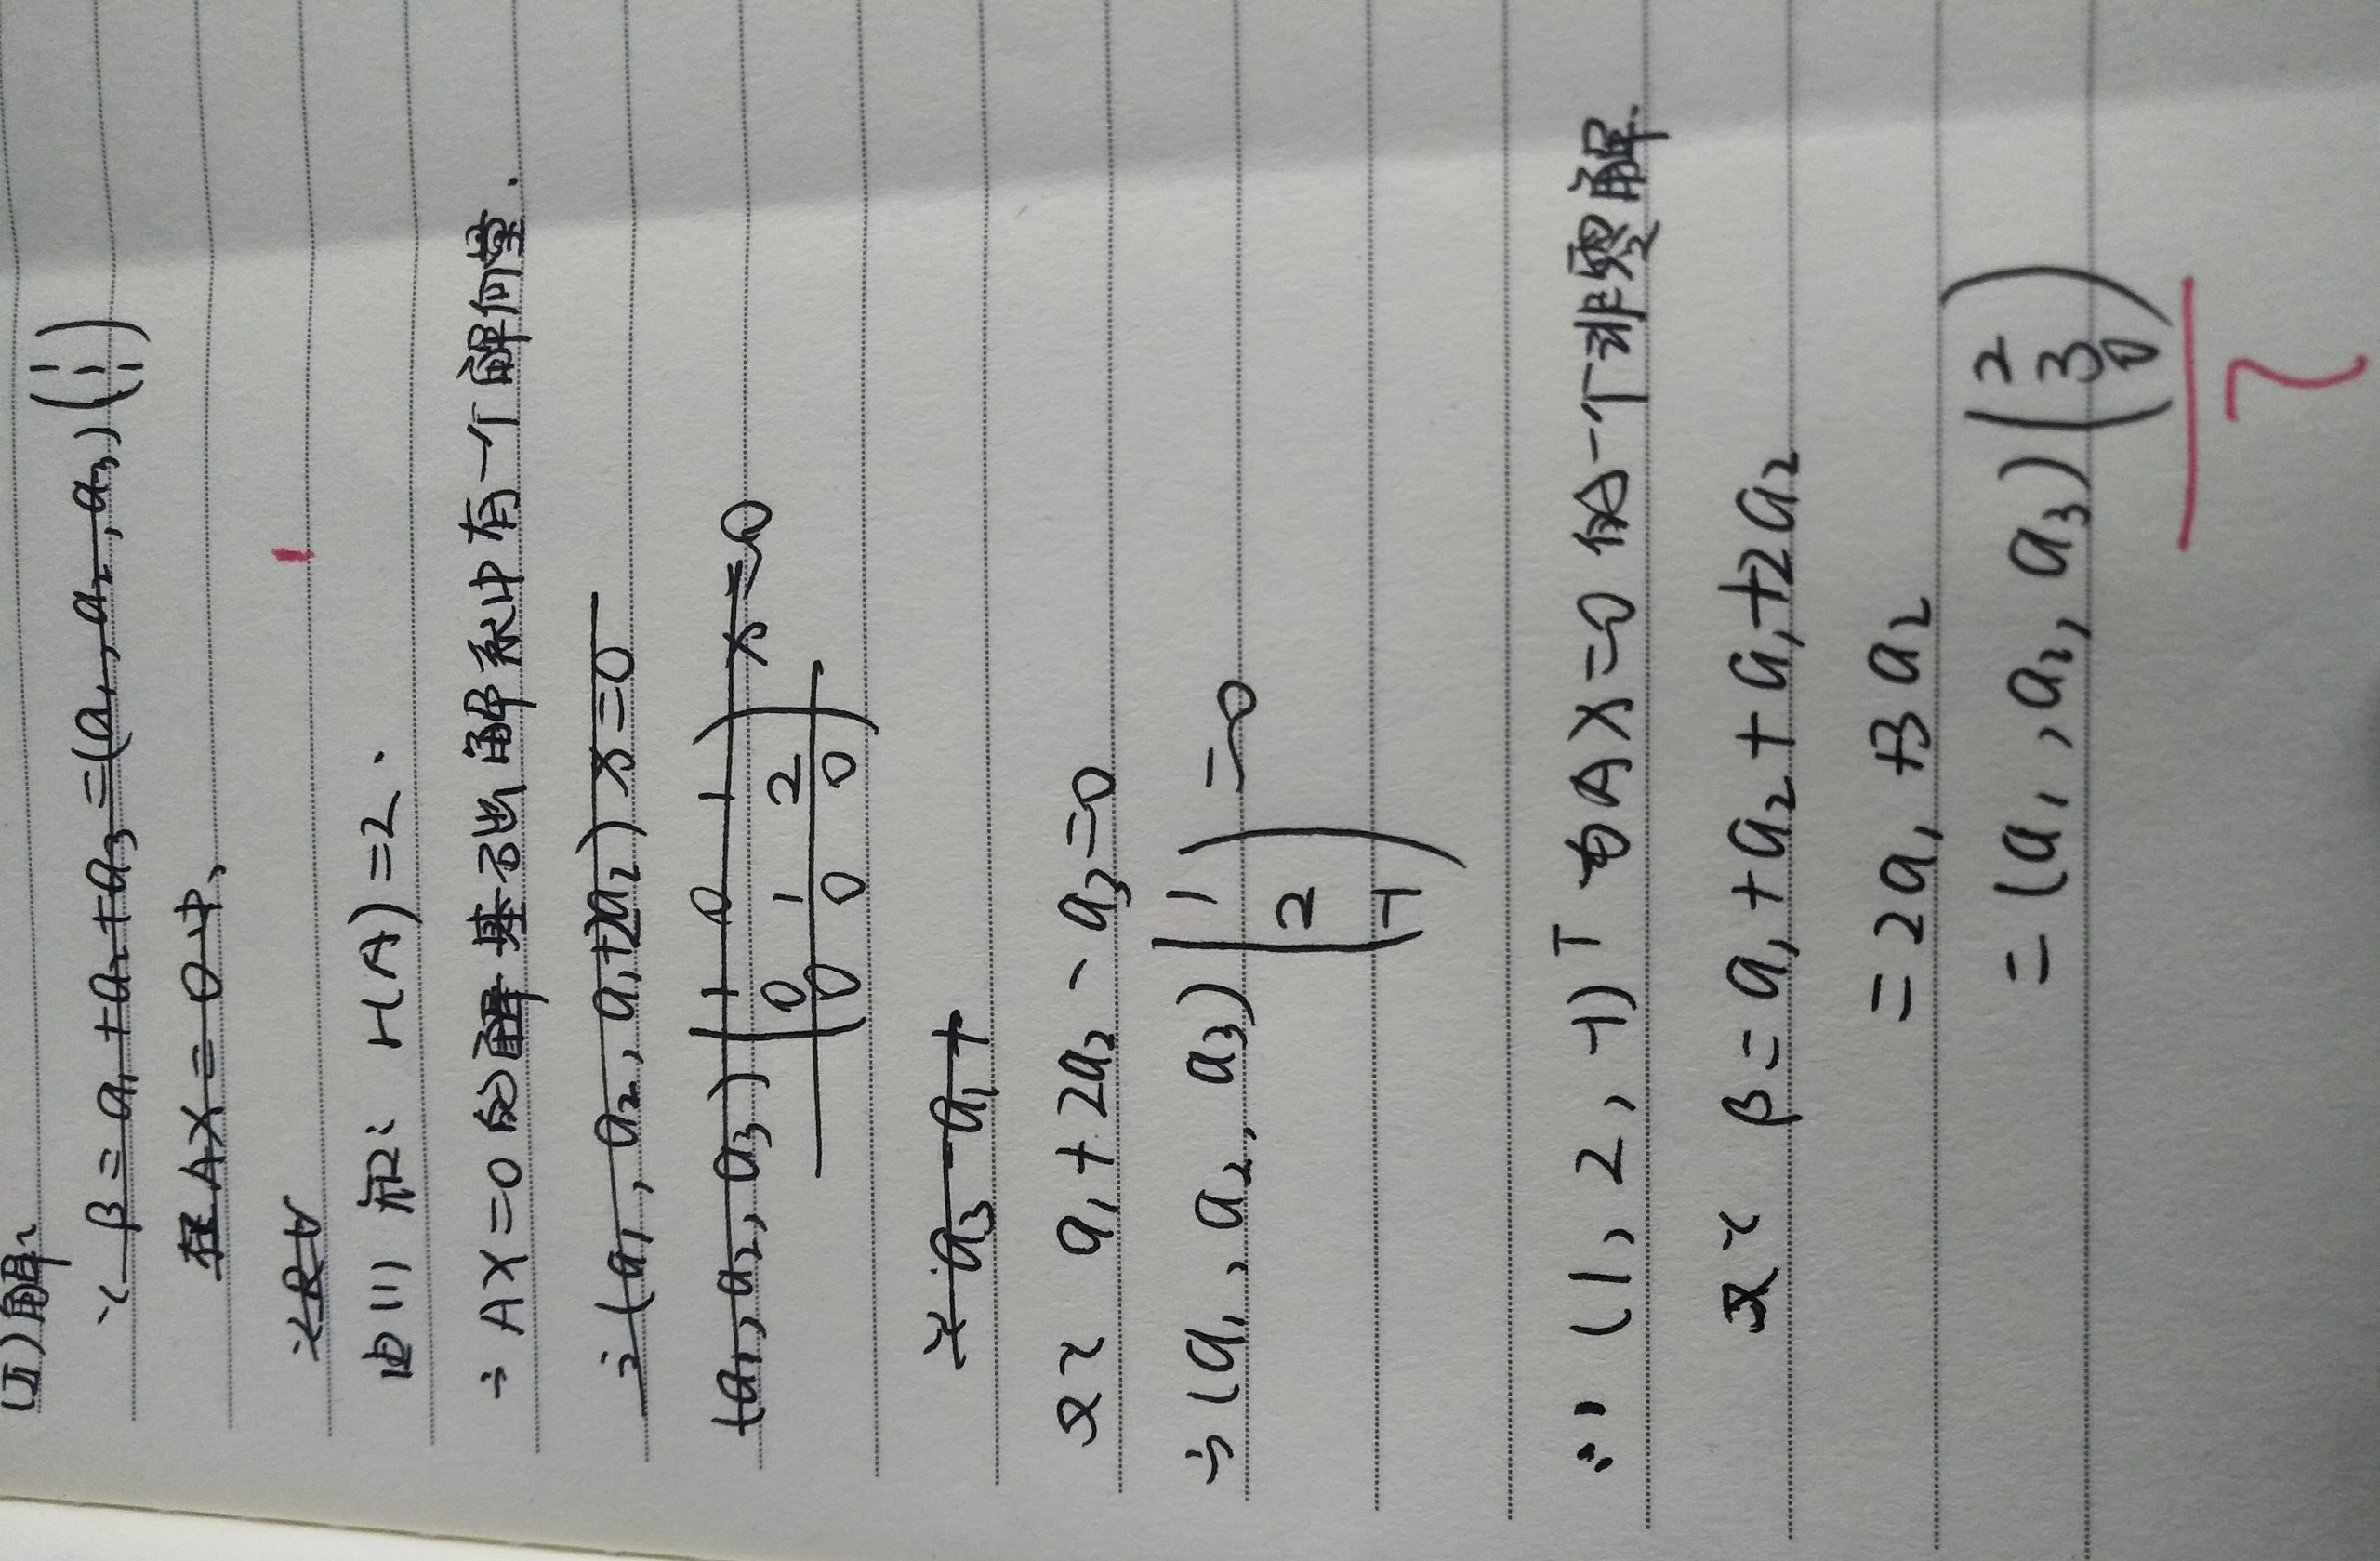 (Ⅱ)解:
∵ β=a₁+a₂+a₃=(a₁,a₂,a₃)(1 1 1)
在AX=0中、
由(1)知: r(A)=2.
∴ AX=0的解基础解系中有一个解向量.
∴(a₁,a₂,a₁+2a₂)x=0
(a₁,a₂,a₃)(1 0 1
0 1 2
0 0 0) x=0
∵a₃-a₁+
又∵ a₁+2a₂-a₃=0
∴(a₁,a₂,a₃)(1
2
-1)=0
∴(1,2,-1)ᵀ为AX=0的一个非零解.
又∵ β=a₁+a₂+a₁+2a₂
=2a₁+3a₂
=(a₁,a₂,a₃)(2
3
0)